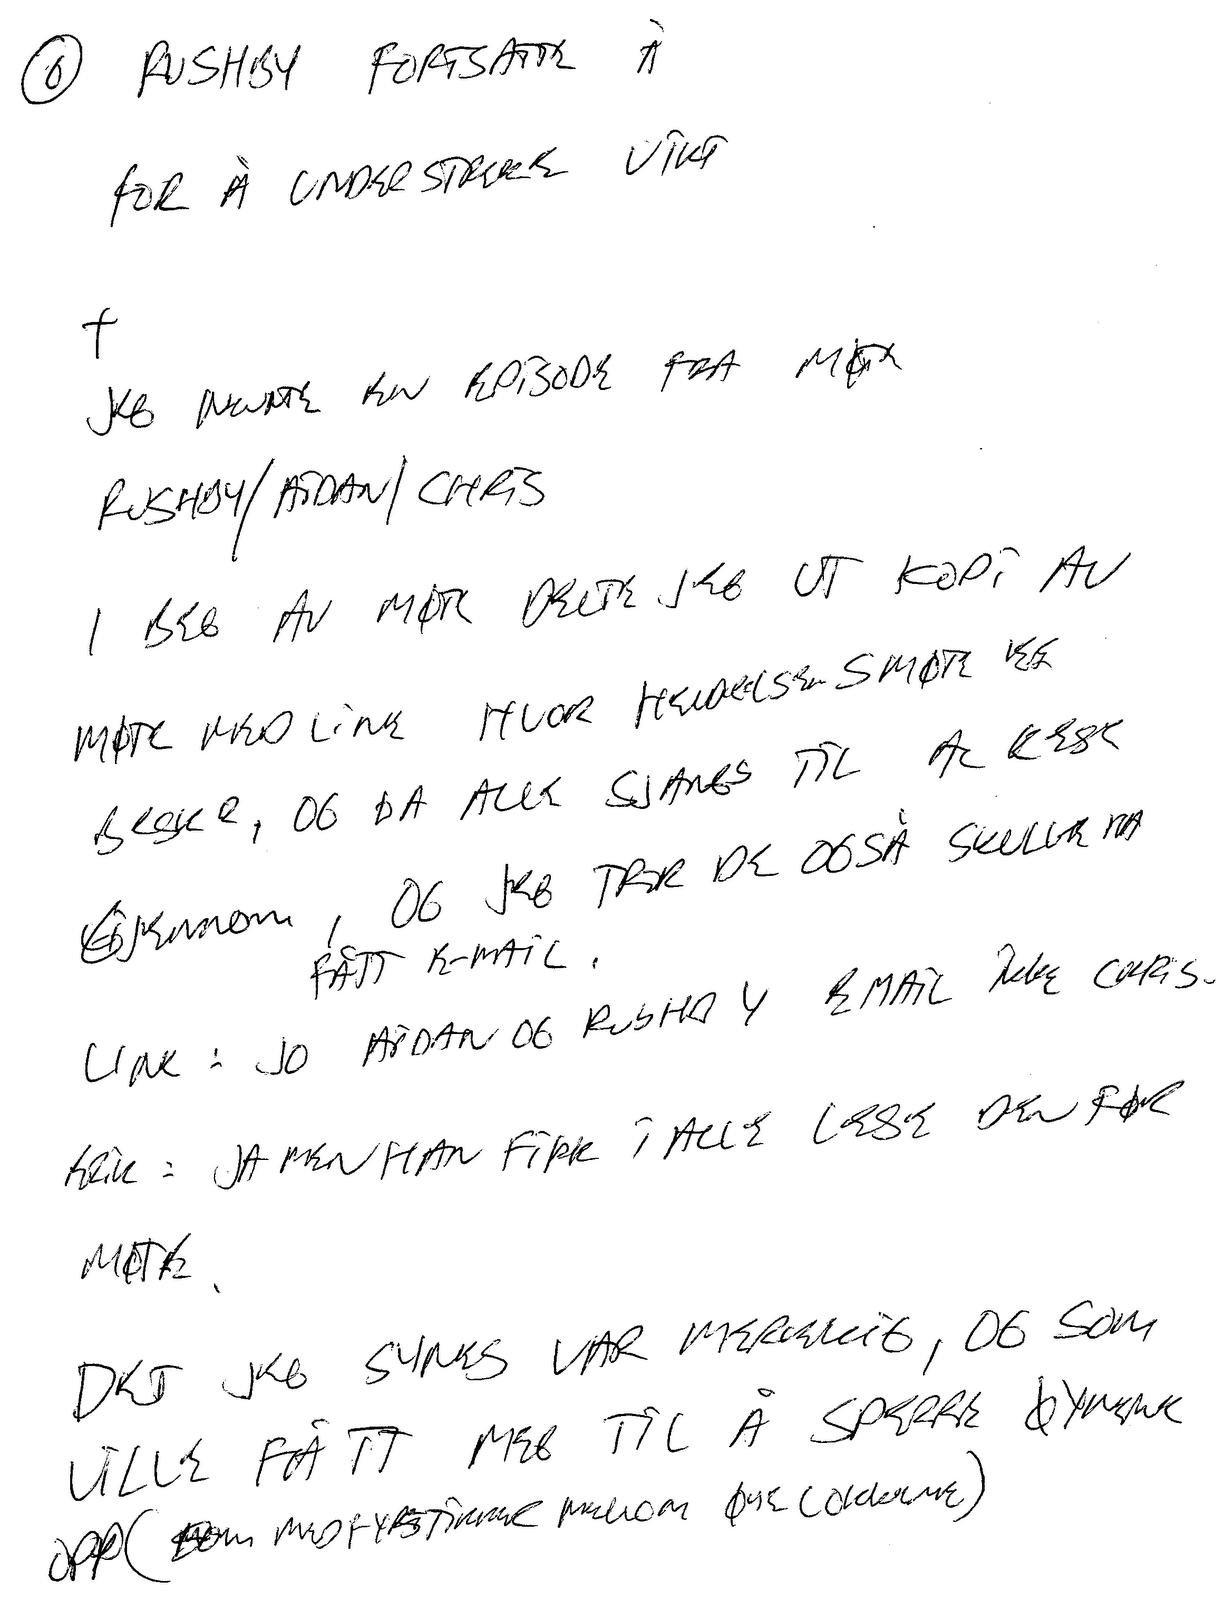 6 RUSHBY FORTSATTE Å
FOR Å UNDERSTREKE VIKT
+
JEG NEVNTE EN EPISODE FRA MØTE
RUSHBY/AIDAN/CHRIS
I BEG AV MØTE DELTE JEG UT KOPI AV
MØTE MED LINE HVOR HENDELSEN SMØTE
, OG DA ALLE SJANGS TIL Å LESE
GJENNOM, OG JEG TROR DE OGSÅ SKULLE HA
FÅTT E-MAIL.
LINE: JO AIDAN OG RUSHBY EMAIL IKKE CHRIS.
ERIK: JA MEN HAN FIKK I ALLE LESE DEN FØR
MØTE.
DET JEG SYNES VAR MERKELIG, OG SOM
VILLE FÅTT MEG TIL Å SPERRE ØYNENE
OPP ( MED FYRSTIKKER MELLOM ØYELOKKENE)